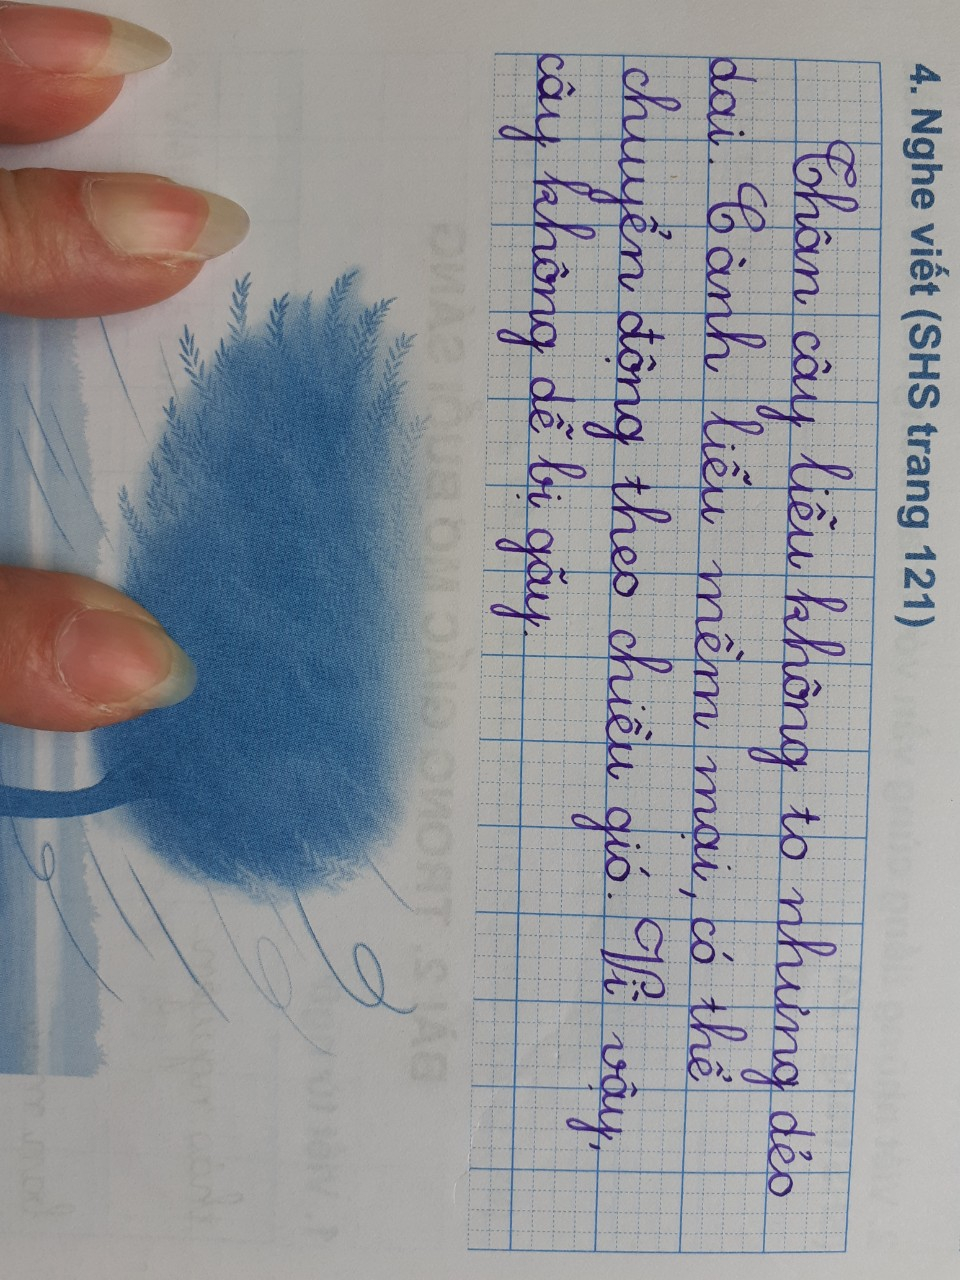 4. Nghe viết (SHS trang 121)
Thân cây liễu không to nhưng dẻo
dai. Cành liễu mềm mại, có thể
chuyển động theo chiều gió. Vì vậy,
cây không dễ bị gãy.